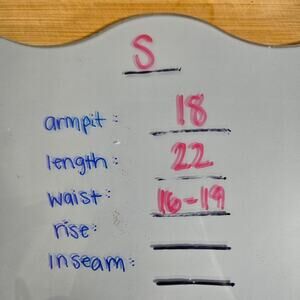 S
armpit: 18
length: 22
waist: 16-19
rise:
inseam: